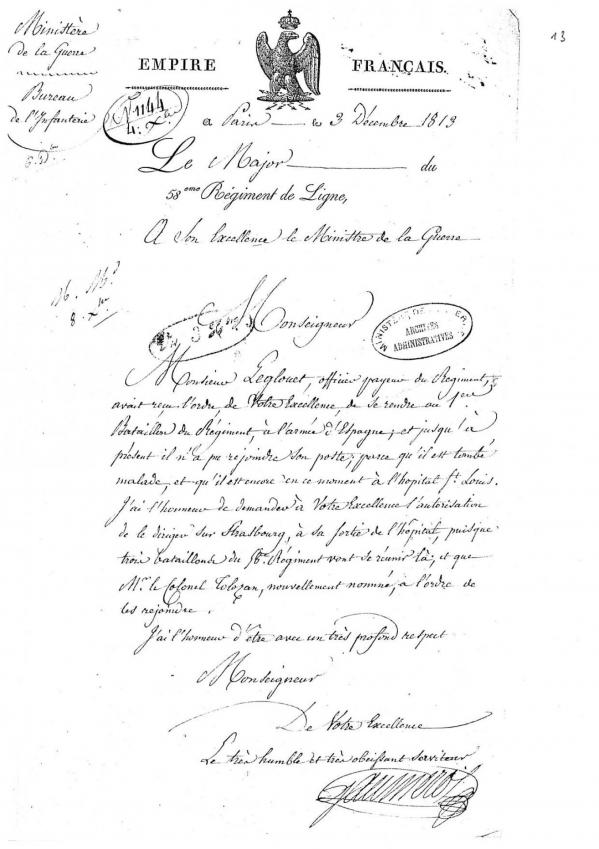 13
Ministère
de la Guerre
Bureau
de l'Infanterie
EMPIRE FRANÇAIS.
N° 1144
a Paris le 3 Décembre 1813
Le Major du
58eme Régiment de Ligne,
A Son Excellence le Ministre de la Guerre
Monseigneur
MINISTÈRE DE LA GUERRE
ARCHIVES
ADMINISTRATIVES
Monsieur Leglouet, officier payeur du Régiment,
avait reçu l'ordre, de Votre Excellence de se rendre au 1er
Bataillon du Régiment, à l'armée d'Espagne, et jusqu'à
présent il n'a pu rejoindre son poste, parce qu'il est tombé
malade, et qu'il est encore en ce moment à l'hôpital St. Louis.
J'ai l'honneur de demander à Votre Excellence l'autorisation
de le diriger sur Strasbourg, à sa sortie de l'hôpital, puisque
trois bataillons du 58e Régiment vont se réunir là, et que
Mr. le Colonel Tolozan, nouvellement nommé, a l'ordre de
les rejoindre.
J'ai l'honneur d'être avec un très profond respect
Monseigneur
De Votre Excellence
Le très humble et très obéissant serviteur